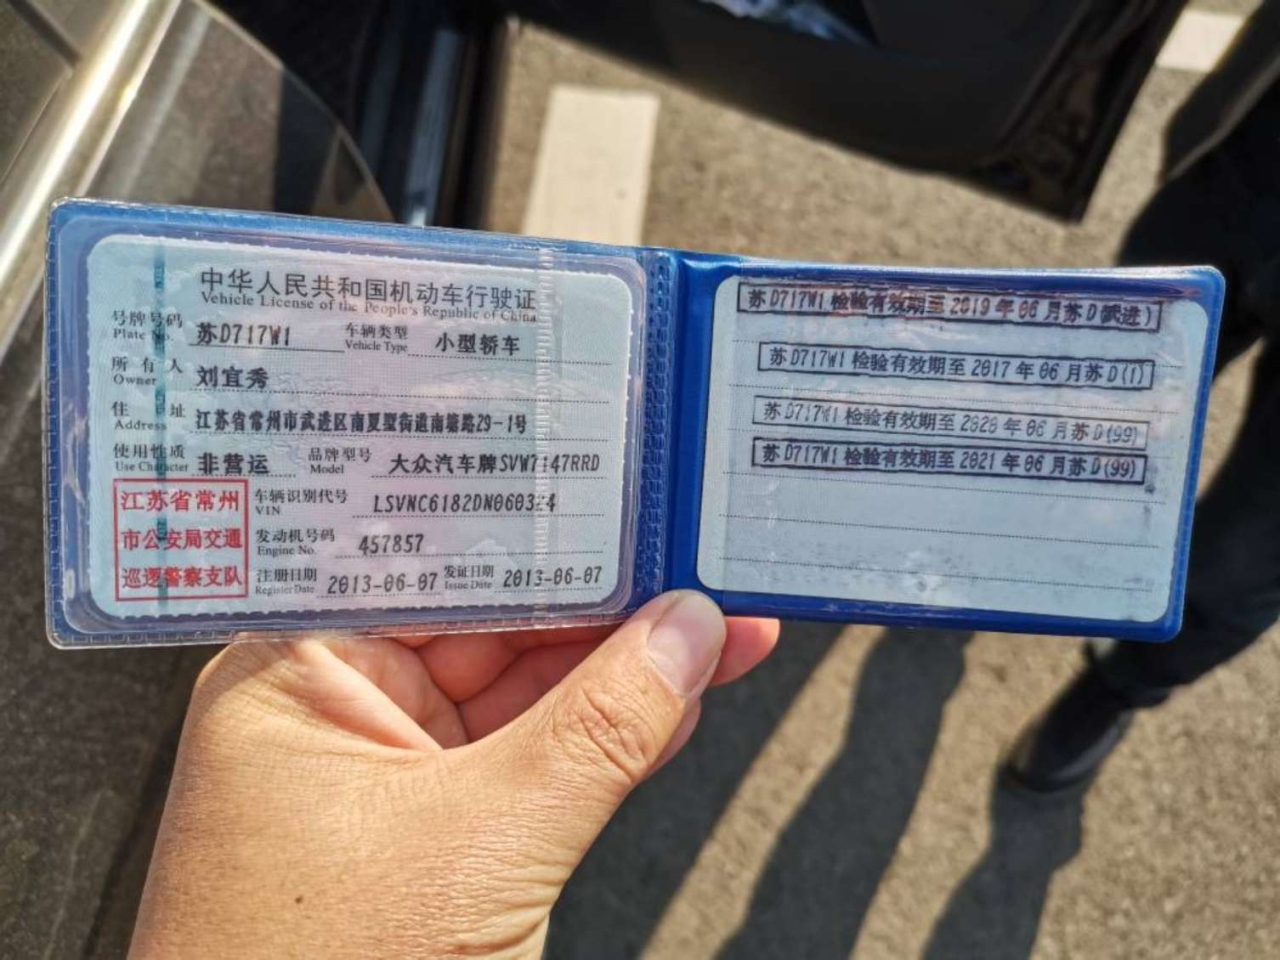 中华人民共和国机动车行驶证
Vehicle License of the People's Republic of China
号牌号码 苏D717W1 车辆类型 小型轿车
Plate No. Vehicle Type
所有人 刘宜秀
Owner
住址 江苏省常州市武进区南夏墅街道南塘路29-1号
Address
使用性质 非营运 品牌型号 大众汽车牌SVW7147RRD
Use Character Model
江苏省常州
市公安局交通
巡逻警察支队
车辆识别代号 LSVNC6182DN060324
VIN
发动机号码 457857
Engine No.
注册日期 2013-06-07 发证日期 2013-06-07
Register Date Issue Date
苏D717W1 检验有效期至 2019 年 06 月苏 D(武进)
苏D717W1 检验有效期至 2017 年 06 月苏 D(1)
苏D717W1 检验有效期至 2020 年 06 月苏 D(99)
苏D717W1 检验有效期至 2021 年 06 月苏 D(99)